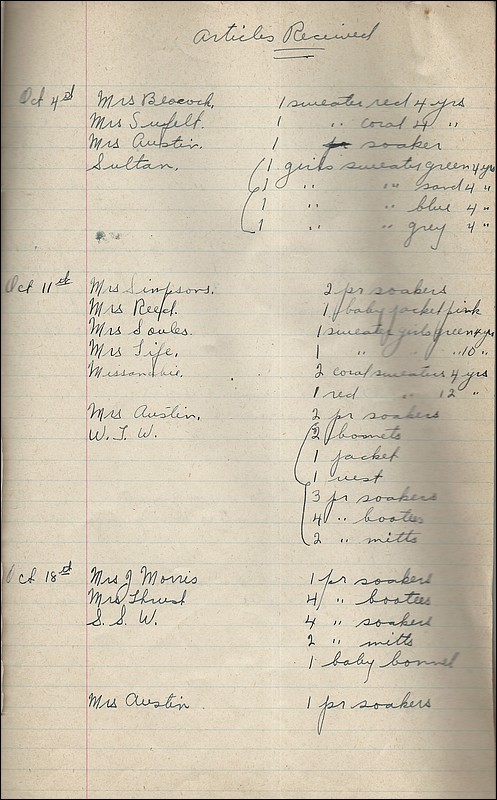 Articles Received
Oct 4st Mrs Beacock, 1 sweater red 4 yrs
Mrs Sufelt. 1 " coral 4 "
Mrs Austin. 1 soaker
Sultan. 1 girls sweater green 4 yrs
1 " " sand 4 "
1 " " blue 4 "
1 " " grey 4 "
Oct 11st Mrs Simpsons. 2 pr soakers
Mrs Reed. 1 baby jacket pink
Mrs Soules. 1 sweater girls green 4 yrs
Mrs Fife. 1 " " " 10 "
Missanabie. 2 coral sweaters 4 yrs
1 red " 12 "
Mrs Austin. 2 pr soakers
W. I. W. 2 bonnets
1 jacket
1 vest
3 pr soakers
4 " bootees
2 " mitts
Oct 18st Mrs J Morris 1 pr soakers
Mrs Thrust 4 " bootees
S. S. W. 4 " soakers
2 " mitts
1 baby bonnet
Mrs Austin 1 pr soakers